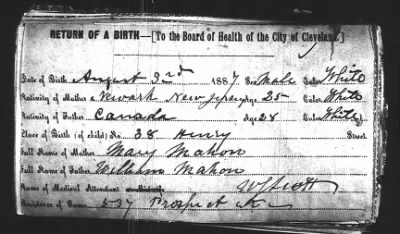 RETURN OF A BIRTH—[To the Board of Health of the City of Cleveland.]
Date of Birth August 3rd 1887 Sex Male Color White
Nativity of Mother Newark New Jersey Age 25 Color White
Nativity of Father Canada Age 28 Color White
Place of Birth (of child) No. 38 Henry Street
Full Name of Mother Mary Mahon
Full Name of Father William Mahon
Name of Medical Attendant W Scott
Residence of Same 537 Prospect St